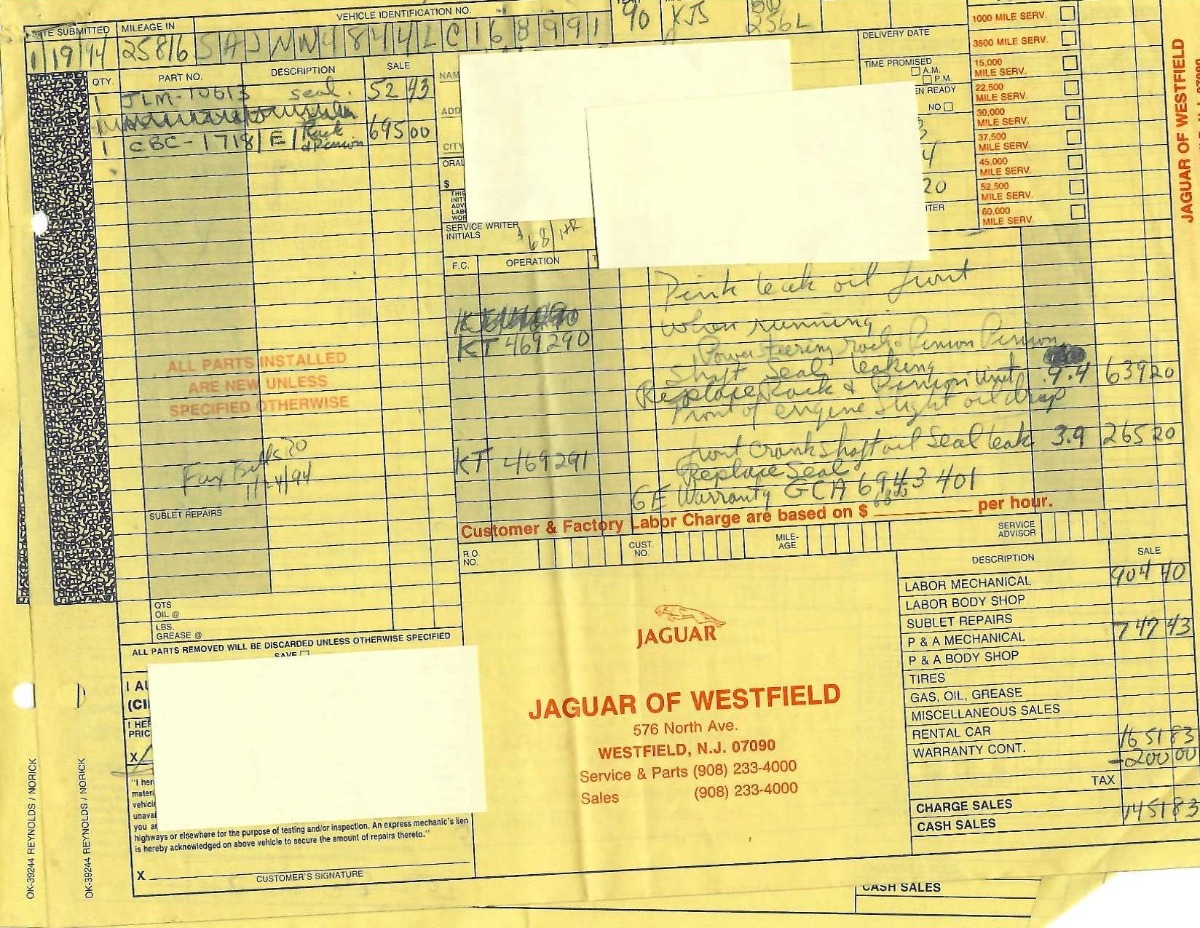 VEHICLE IDENTIFICATION NO.
TE SUBMITTED MILEAGE IN
1/19/94 25816 SAJNN4844LC168991 90 XJS 256L
QTY. PART NO. DESCRIPTION SALE
1 JLM-10613 seal. 52 43
1
1 CBC-1718/E/Rack & Pinion 695 00
ALL PARTS INSTALLED
ARE NEW UNLESS
SPECIFIED OTHERWISE
1/24/94
SUBLET REPAIRS
QTS
OIL @
LBS.
GREASE @
ALL PARTS REMOVED WILL BE DISCARDED UNLESS OTHERWISE SPECIFIED
SAVE
I AU
(CI
I HER
PRIC
X
"I her
mater
vehicle
unavai
you a
highways or elsewhere for the purpose of testing and/or inspection. An express mechanic's lien
is hereby acknowledged on above vehicle to secure the amount of repairs thereto."
X
CUSTOMER'S SIGNATURE
NAM
ADD
CITY
ORAL
$
THIS
INITI
ADV
LAB
WOR
SERVICE WRITER
INITIALS
68/HR
DELIVERY DATE
TIME PROMISED
A.M.
P.M.
EN READY
NO
4
20
ITER
1000 MILE SERV.
3500 MILE SERV.
15,000
MILE SERV.
22,500
MILE SERV.
30,000
MILE SERV.
37,500
MILE SERV.
45,000
MILE SERV.
52,500
MILE SERV.
60,000
MILE SERV.
JAGUAR OF WESTFIELD
F.C. OPERATION T
Pink leak oil front
when running
KT 469290
Power steering rack & Pinion Pinion
Shaft Seal leaking
Replace Rack & Pinion Unit 9.4 639 20
Front of engine slight oil drap
KT 469291 front Crankshaft oil Seal leak 3.9 265 20
Replace Seal
GE Warranty GCA 6943401
68.00
Customer & Factory Labor Charge are based on $ per hour.
R.O.
NO.
CUST.
NO.
MILE-
AGE
SERVICE
ADVISOR
JAGUAR
JAGUAR OF WESTFIELD
576 North Ave.
WESTFIELD, N.J. 07090
Service & Parts (908) 233-4000
Sales (908) 233-4000
DESCRIPTION SALE
LABOR MECHANICAL 904 40
LABOR BODY SHOP
SUBLET REPAIRS
P & A MECHANICAL 747 43
P & A BODY SHOP
TIRES
GAS, OIL, GREASE
MISCELLANEOUS SALES
RENTAL CAR 1651 83
WARRANTY CONT. -200 00
TAX
CHARGE SALES 1451 83
CASH SALES
CASH SALES
OK-39244 REYNOLDS / NORICK
OK-39244 REYNOLDS / NORICK